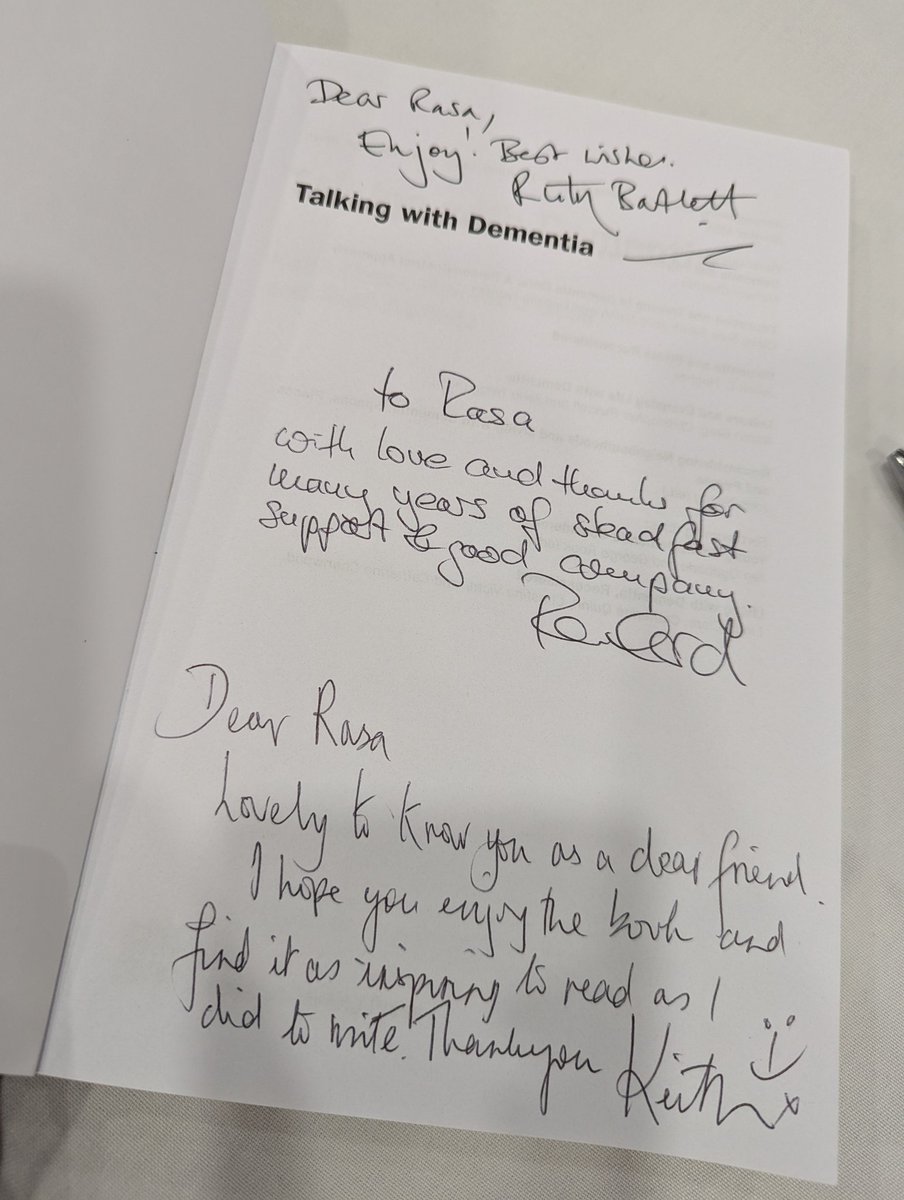 Dear Rasa,
Enjoy! Best wishes.
Ruth Bartlett
Talking with Dementia
to Rasa
with love and thanks for
many years of steadfast
support & good company.
Dear Rasa
Lovely to know you as a dear friend.
I hope you enjoy the book and
find it as inspiring to read as I
did to write. Thankyou Keith x